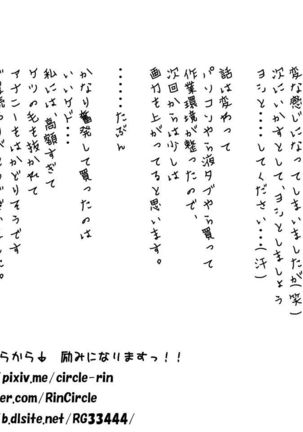 変な感じになってしまいましたが(笑)
次にいかすとして、ヨシとしましょう
ヨシと・・・してください・・・(汗)
話は変わって
パソコンやら液タブやら買って
作業環境が整ったので、
次回からは少しは
画力も上がってると思います。
・・・・たぶん
かなり奮発して買ったのは
いいケド・・・
私には、高額すぎて
ケツの毛も抜かれて
アナニーをはかどりそうです
らから↓ 励みになりますっ!!
/pixiv.me/circle-rin
er.com/RinCircle
b.dlsite.net/RG33444/